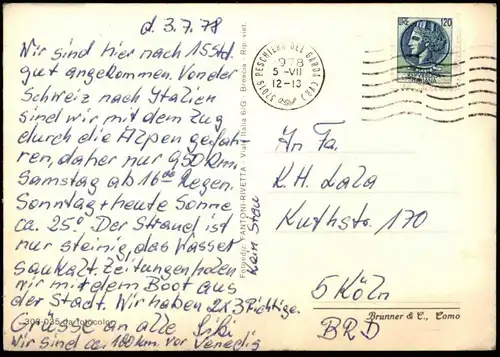 d. 3.7.78
Wir sind hier nach 15 Std.
gut angekommen. Von der
Schweiz nach Italien
sind wir mit dem Zug
durch die Alpen gefah-
ren, daher nur 950 km.
Samstag ab 16⁰⁰ Regen.
Sonntag + heute Sonne
ca. 25°. Der Strand ist
nur steinig, das Wasser
saukalt. Zeitungen holen
wir mit dem Boot aus
der Stadt. Wir haben 2x3 richtige.
Grüsse an alle
Wir sind ca. 180 km. vor Venedig
Kein Stau
Fotoediz. FANTONI-RIVETTA - Viale Italia 6/G - Brescia - Rip. viet.
37019 PESCHIERA DEL GARDA (VR)
1978
5-VII
12-13
LIRE 120
An Fa.
K.H.
170
5 Köln
BRD
Brunner & C., Como
fotocolor